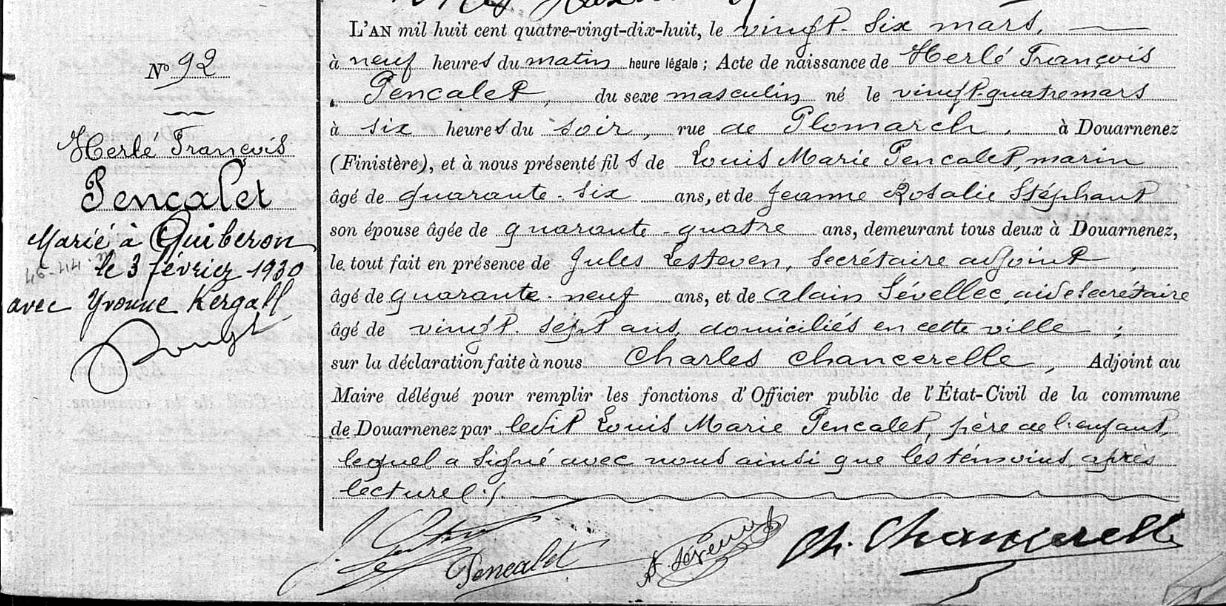 N° 92
Herlé François
Pencalet
Marié à Quiberon
le 3 février 1930
avec Yvonne Kergall
L'AN mil huit cent quatre-vingt-dix-huit, le vingt-six mars,
à neuf heures du matin heure légale ; Acte de naissance de Herlé François
Pencalet, du sexe masculin né le vingt quatre mars
à six heures du soir, rue de Plomarch, à Douarnenez
(Finistère), et à nous présenté fils de Louis Marie Pencalet, marin
âgé de quarante-six ans, et de Jeanne Rosalie Stéphant
son épouse âgée de quarante-quatre ans, demeurant tous deux à Douarnenez,
le tout fait en présence de Jules Lesteven, secrétaire adjoint,
âgé de quarante-neuf ans, et de Alain Sévellec, aide secrétaire
âgé de vingt sept ans, domiciliés en cette ville ;
sur la déclaration faite à nous Charles Chancerelle, Adjoint au
Maire délégué pour remplir les fonctions d'Officier public de l'État-Civil de la commune
de Douarnenez par ledit Louis Marie Pencalet, père de l'enfant,
lequel a signé avec nous ainsi que les témoins, après
lecture./.
Pencalet Ch. Chancerelle